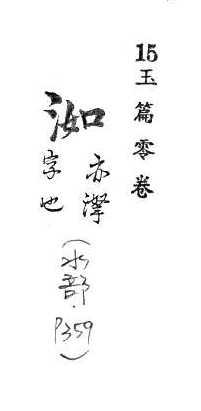 15玉篇零卷
洳
亦㵖
字也
(水部·P359)